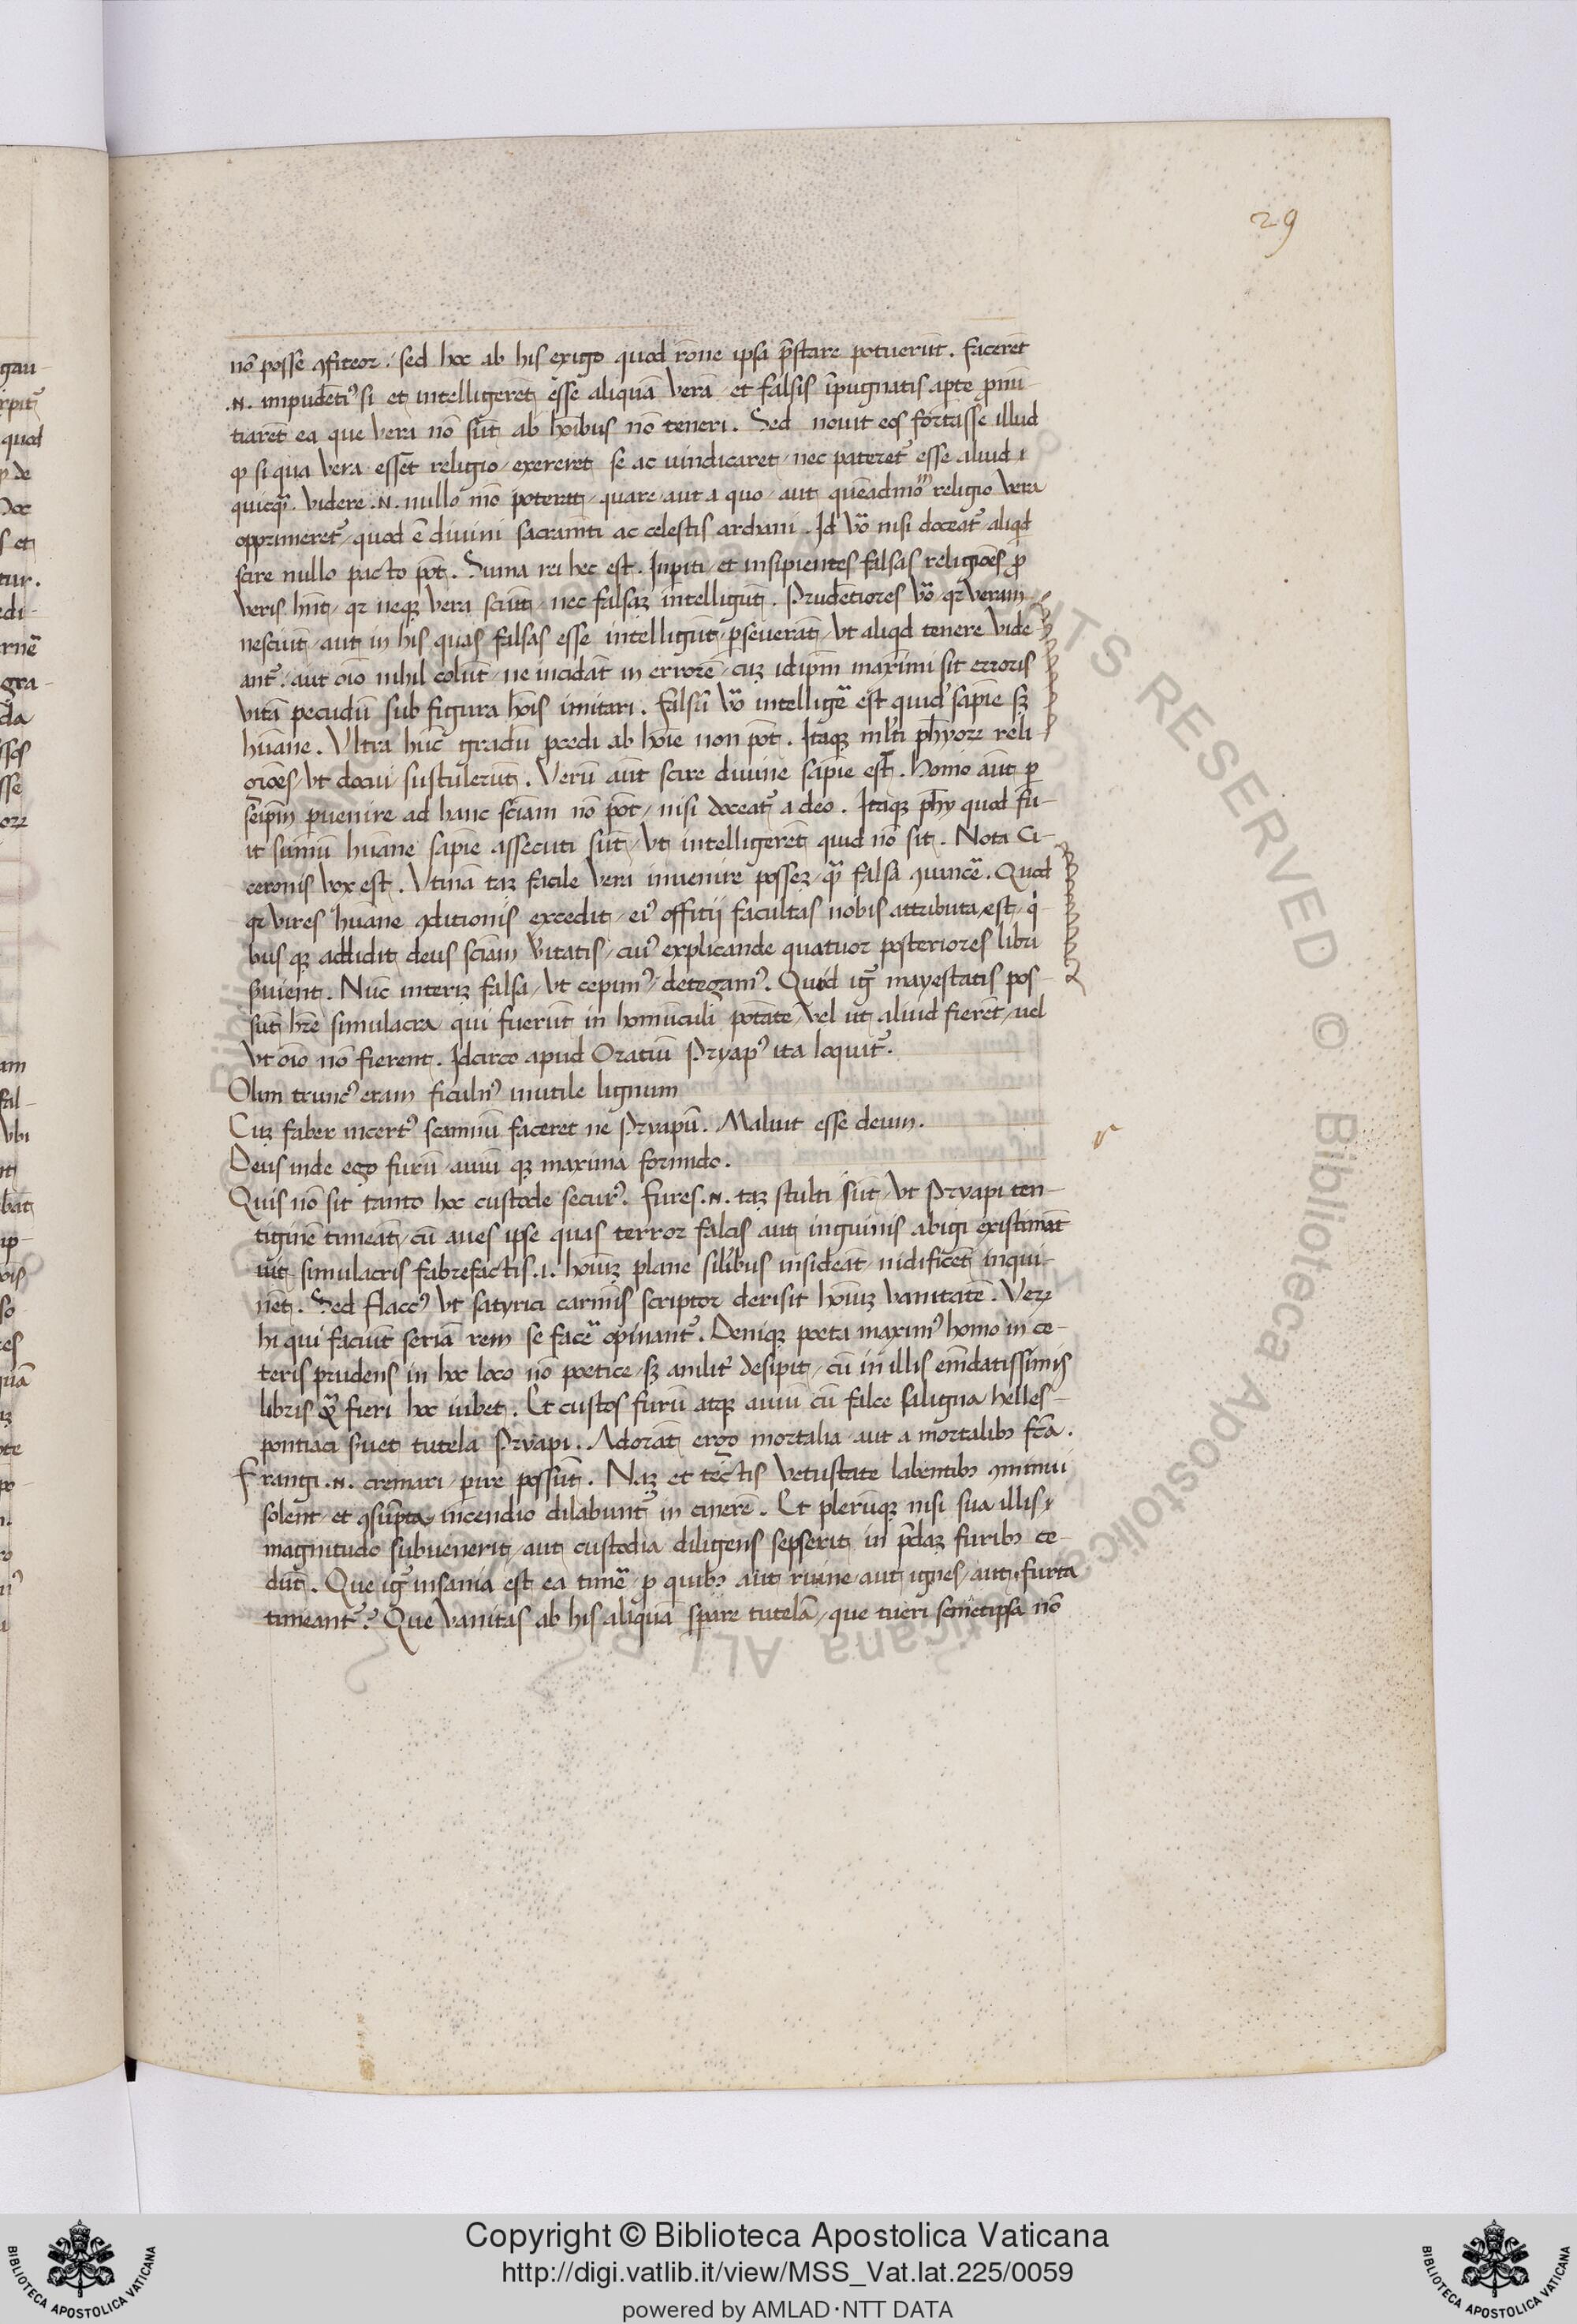 29
nō posse ꝯfiteor. sed hoc ab his exigo quod rōne ipsa p̄stare potuerūt. Faceret̄
.N. impudētiꝰ si et intelligeret esse aliquā verā et falsis īpugnatis apte ꝓnū-
tiaret ea que vera nō sūt ab hoībus nō teneri. Sed novit eos fortasse illud
ꝙ si qua vera esset religio / exereret se ac vindicaret / nec pateret̄ esse aliud
quicq̄. Videre .N. nullo mō poterat / quare / aut a quo / aut quēadmoͫ religio vera
opprimeret̄ / quod ē divini sacramti ac celestis archani. Id vō nisi doceat̄ aliqd
scire nullo pacto pōt. Suma rei hec est. Inꝑiti et insipientes falsas religiōes ꝓ
veris hn̄t / qr neqꝫ vera sciūt nec falsaꝫ intelligūt. Prudētiores vō qr veram
nesciūt / aut in his quas falsas esse intelligūt ꝑseverāt / vt aliqd tenere vide
ant̄ / aut oīo nihil colūt / ne incidāt in errorē / cuꝫ idip̄m maximi sit erroris
vitā pecudū sub figura hoīs imitari. Falsū vō intelligē est quidē sapīe sꝫ
humāne. Ultra hūc gradū ꝓcedi ab hoīe non pōt. Itaqꝫ ml̄ti ph̄yoꝝ reli
gioēs / vt docui sustulerūt. Verū aūt scire divine sapīe est. Homo aūt ꝑ
seip̄m ꝑvenire ad hanc sciām nō pōt / nisi doceat̄ a deo. Itaqꝫ ph̄y quod fu-
it summū humāne sapīe assecuti sūt / vt intelligerēt quid nō sit. Nota Ci-
ceronis vox est. Utinā taꝫ facile vera invenire posseꝫ / qꝫ falsa ꝯvincē. Quod
qr vires humāne ꝯditionis excedit / eiꝰ offitii facultas nobis attributa est / qͥ-
bus qꝫ addidit deus sciām v̄itatis / cuiꝰ explicande quatuor posteriores libri
s̄vient. Nūc interiꝫ falsa / vt cepimꝰ / detegamꝰ. Quid ig̃ mayestatis pos-
sūt hr̄e simulacra qui fuerūt in homūculi potāte / vel ut aliud fierēt / vel
vt oīo nō fierent. Idcirco apud Oratiū Pryapꝰ ita loquit̄.
Olim truncꝰ eram ficulnꝰ inutile lignum
Cuꝫ faber incertꝰ scamnū faceret ne Pryapū. Maluit esse deum.
Deus inde ego furū aviū qꝫ maxima formido.
Quis nō sit tanto hoc custode securꝰ. Fures .N. taꝫ stulti sūt / vt Pryapi ten-
tiginē timeāt / cū aves ipse quas terror falcis aut inguinis abigi existimāt
ūt simulacris fabrefactis .i. hoīuꝫ plane silībus insideāt nidificēt inqui-
nēt. Sed Flaccꝰ vt satyrici carmīs scriptor derisit hoīuꝫ vanitatē. Veꝝ
hi qui faciūt seriā rem se facē opinant̄. Deniqꝫ poeta maximꝰ homo in ce-
teris prudens in hoc loco nō poetice sꝫ anilit̄ desipit / cū in illis emēdatissimis
libris qꝫ fieri hoc iubet. Et custos furū atqꝫ aviū cū falce saligna helles-
pontiaci s̄vet tutela Pryapi. Adorāt ergo mortalia aut a mortalibꝫ fc̄a.
Frangi .N. cremari ꝑire possūt. Naꝫ et tectis vetustate labentibꝫ ꝯminui
solent / et ꝯsūpta incendio dilabunt̄ in cinerē. Et plerūqꝫ nisi sua illis
magnitudo subvenerit / aut custodia diligens sepserit in p̄daꝫ furibꝫ ce-
dūt. Que ig̃ insania est ea timē / ꝓ quibꝫ aut ruine aut ignes / aut furta
timeant̄? Que vanitas ab his aliquā sꝑare tutelā / que tueri semetipsa nō
gau-
quod
de
s et
tur.
edi-
rnē
gra-
Copyright © Biblioteca Apostolica Vaticana
http://digi.vatlib.it/view/MSS_Vat.lat.225/0059
powered by AMLAD·NTT DATA
BIBLIOTECA APOSTOLICA VATICANA
BIBLIOTECA APOSTOLICA VATICANA